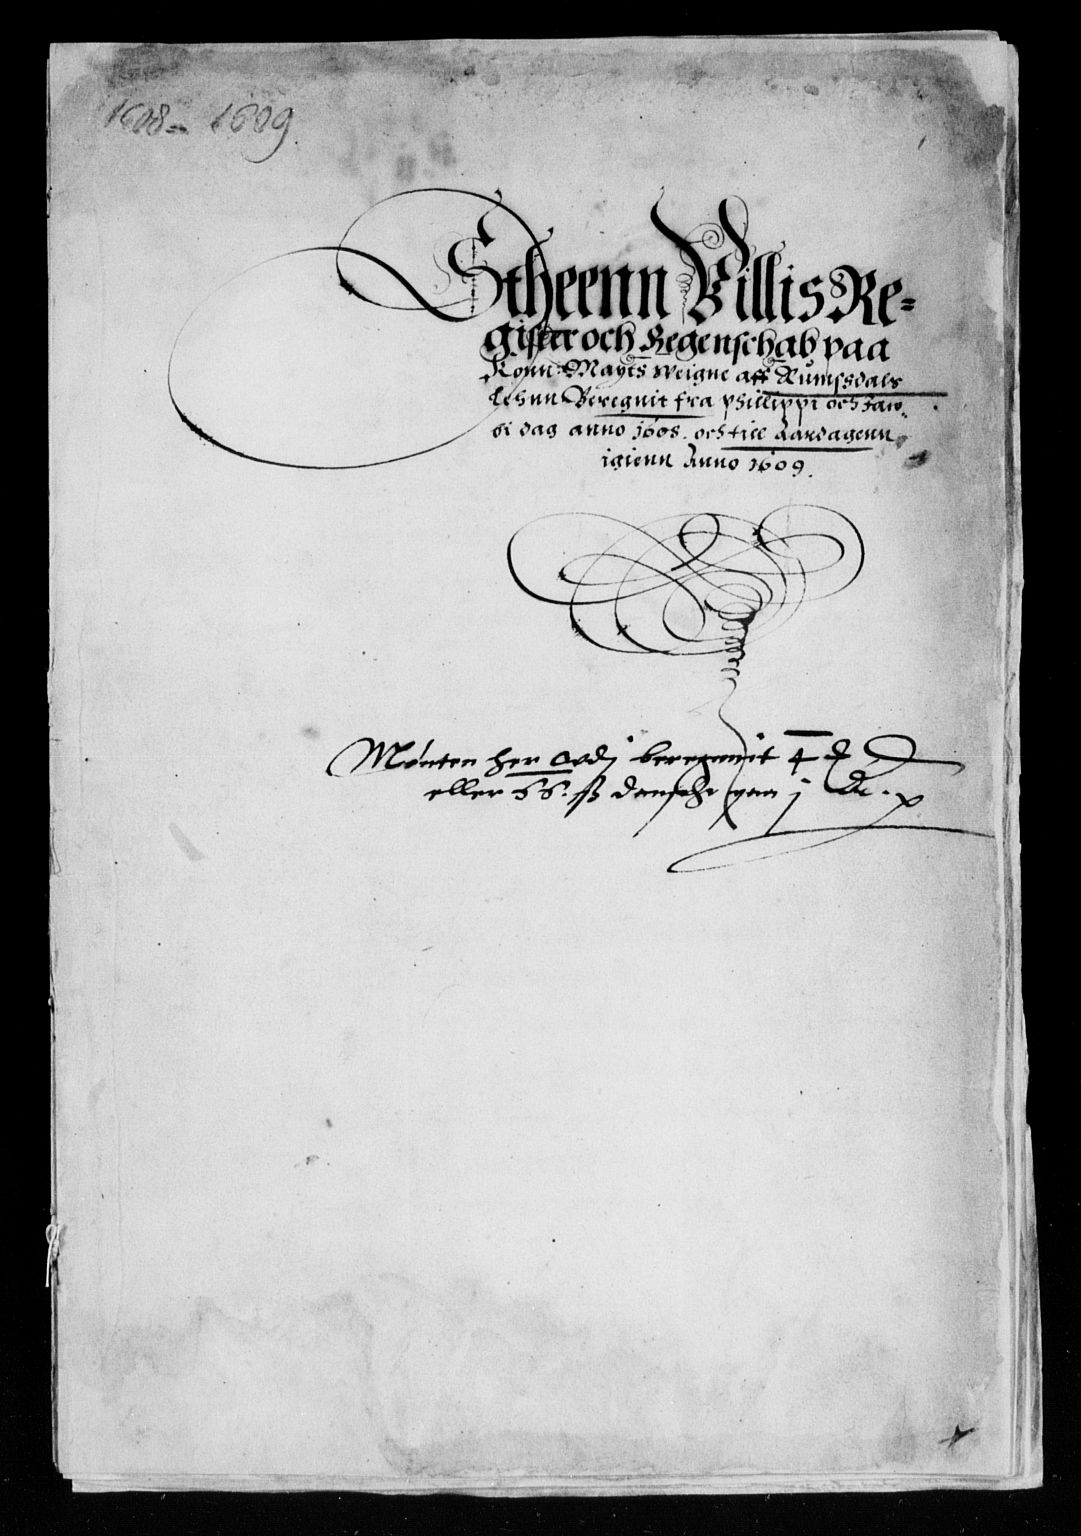 1608 - 1609
Stheenn Billis Re-
gister och Regenschab paa
Konn: Mayts weigne aff Rumssdals
lehnn Beregnit fra Phillippi och Jaco-
bi dag anno 1608. och till Aarsdagenn
igienn Anno 1609.
Mønten her vdj beregnnit 4
eller 66. ß danske paa j